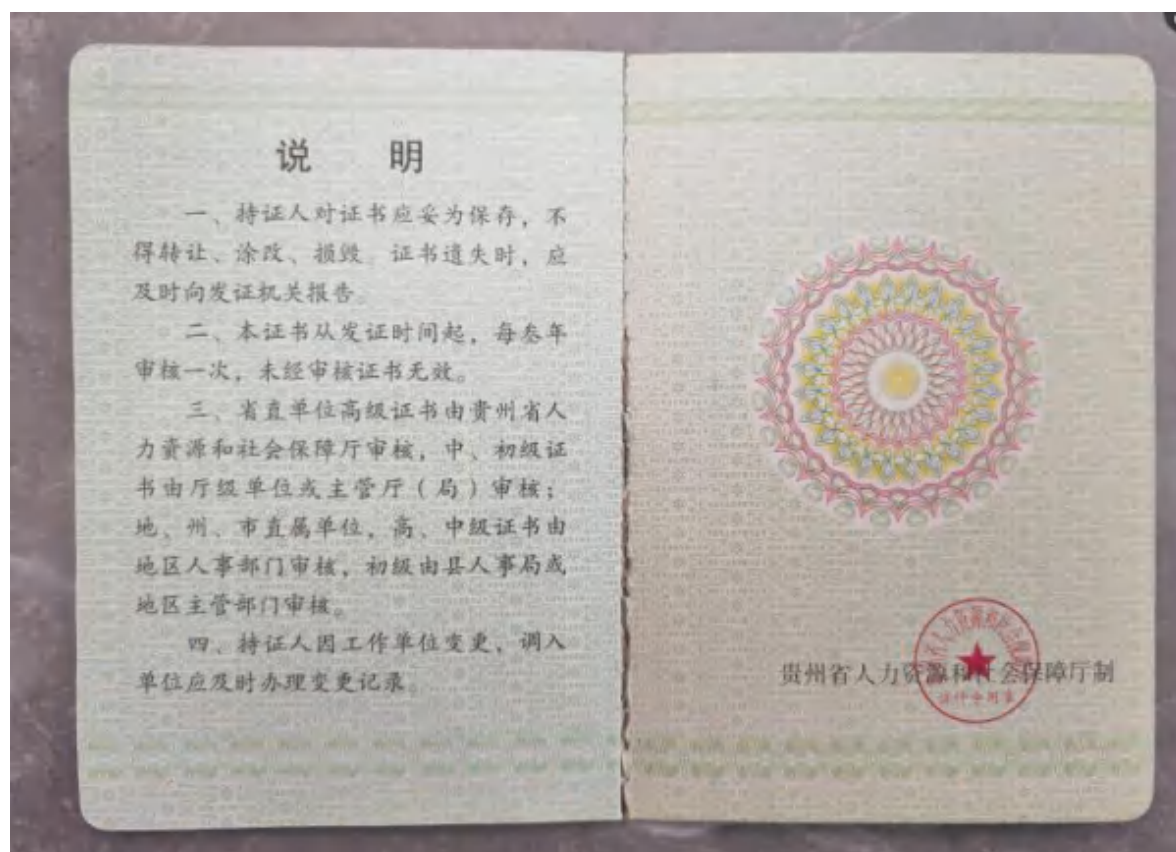 说 明
一、持证人对证书应妥为保存，不
得转让、涂改、损毁 证书遗失时，应
及时向发证机关报告
二、本证书从发证时间起，每叁年
审核一次，未经审核证书无效。
三、省直单位高级证书由贵州省人
力资源和社会保障厅审核，中、初级证
书由厅级单位或主管厅（局）审核；
地、州、市直属单位，高、中级证书由
地区人事部门审核，初级由县人事局或
地区主管部门审核。
四、持证人因工作单位变更，调入
单位应及时办理变更记录
贵州省人力资源和社会保障厅制